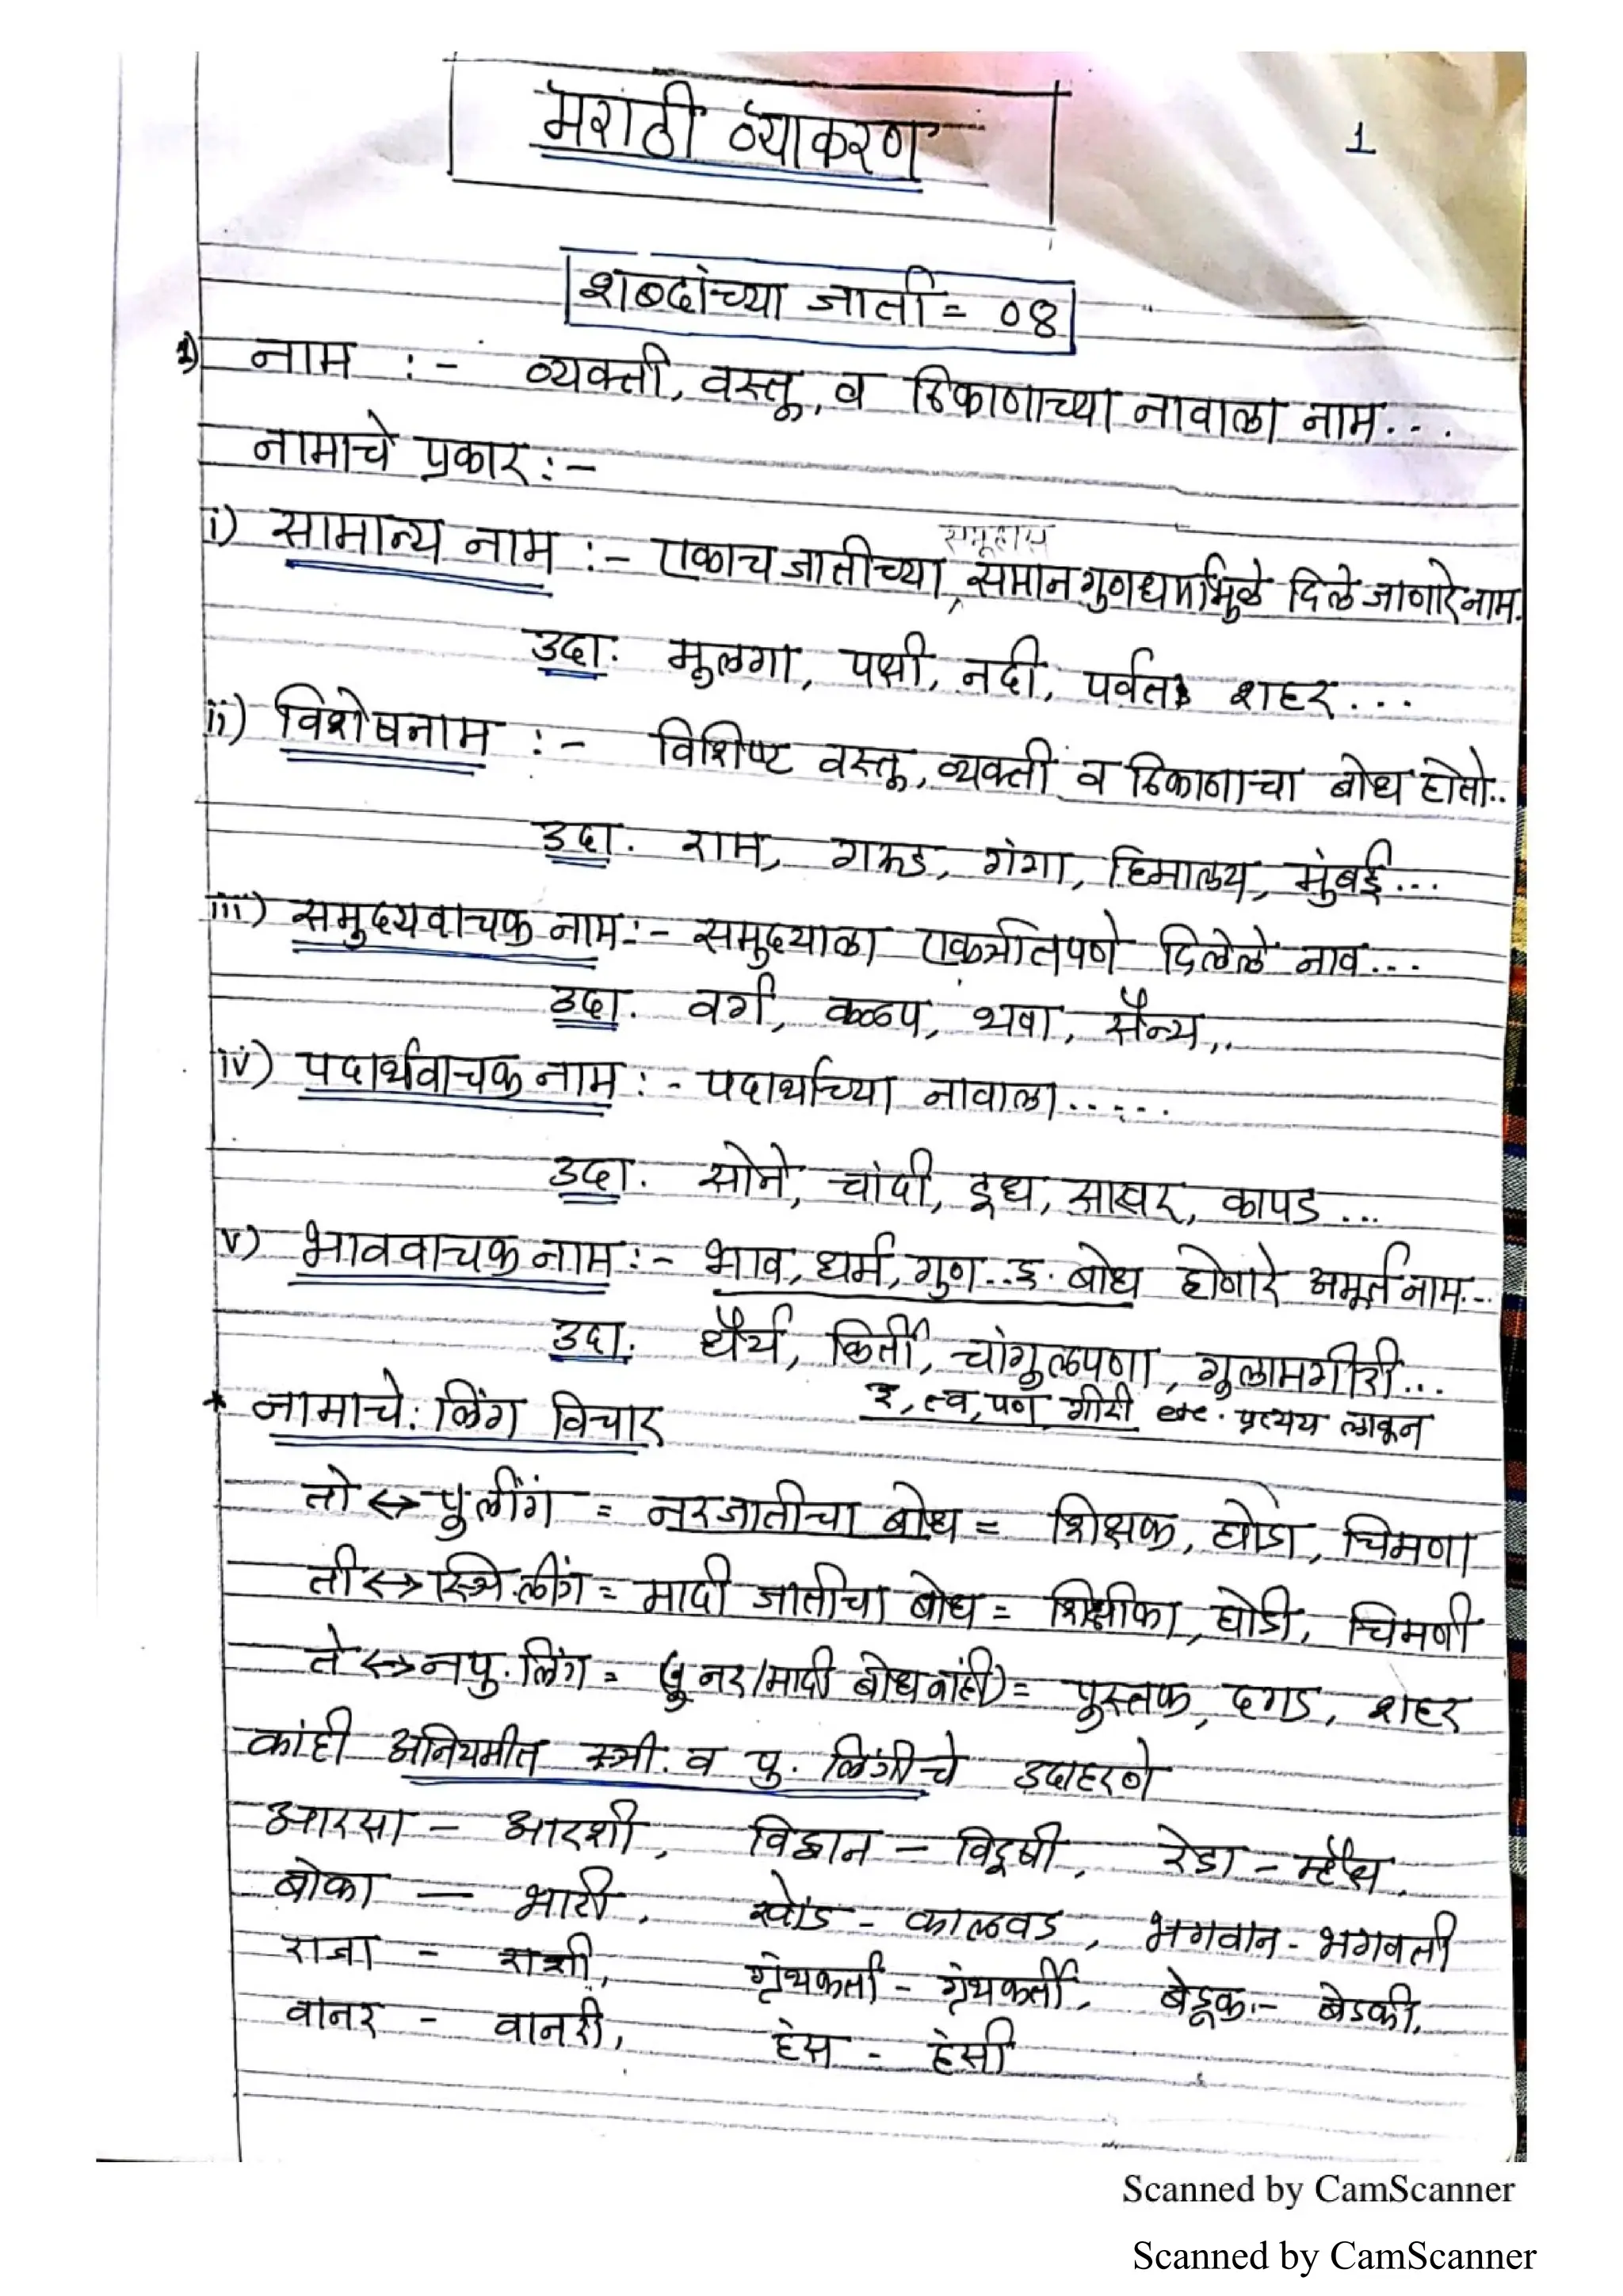 मराठी व्याकरण
1
शब्दांच्या जाती = 08
1) नाम :- व्यक्ती, वस्तू, व ठिकाणाच्या नावाला नाम...
नामाचे प्रकार :-
i) सामान्य नाम :- एकाच जातीच्या समूहास समान गुणधर्मामुळे दिले जाणारे नाम.
उदा. मुलगा, पक्षी, नदी, पर्वत, शहर...
ii) विशेषनाम :- विशिष्ट वस्तू, व्यक्ती व ठिकाणाचा बोध होतो..
उदा. राम, गरुड, गंगा, हिमालय, मुंबई...
iii) समुदयवाचक नाम :- समुदयाला एकत्रीतपणे दिलेले नाव...
उदा. वर्ग, कळप, थवा, सैन्य,..
iv) पदार्थवाचक नाम :- पदार्थाच्या नावाला.....
उदा. सोने, चांदी, दुध, साखर, कापड...
v) भाववाचक नाम :- भाव, धर्म, गुण..इ. बोध होणारे अमूर्त नाम...
उदा. धैर्य, किर्ती, चांगुलपणा, गुलामगीरी...
ई, त्व, पण, गीरी etc. प्रत्यय लावून
* नामाचे: लिंग विचार
तो ↔ पुलींग = नरजातीचा बोध = शिक्षक, घोडा, चिमणा
ती ↔ स्त्रि.लींग = मादी जातीचा बोध = शिक्षीका, घोडी, चिमणी
ते ↔ नपु.लिंग = (नर/मादी बोध नाही) = पुस्तक, दगड, शहर
कांही अनियमीत स्त्री. व पु. लिंगीचे उदाहरणे
आरसा - आरशी, विद्वान - विदूषी, रेडा - म्हैस,
बोका - भाटी, खोंड - कालवड, भगवान - भगवती
राजा - राज्ञी, ग्रंथकर्ता - ग्रंथकर्ती, बेडूक - बेडकी,
वानर - वानरी, हंस - हंसी
Scanned by CamScanner
Scanned by CamScanner